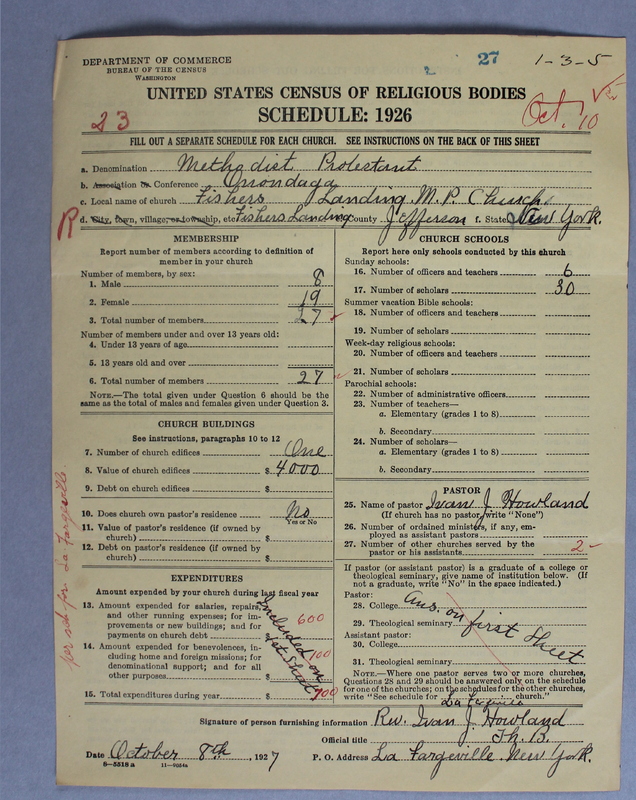 DEPARTMENT OF COMMERCE
BUREAU OF THE CENSUS
WASHINGTON
27
1-3-5
UNITED STATES CENSUS OF RELIGIOUS BODIES
SCHEDULE: 1926
23
Oct. 10
FILL OUT A SEPARATE SCHEDULE FOR EACH CHURCH. SEE INSTRUCTIONS ON THE BACK OF THIS SHEET
a. Denomination Methodist Protestant
b. Association or Conference Onondaga
c. Local name of church Fishers Landing M. P. Church
R d. City, town, village, or township, etc. Fishers Landing County Jefferson f. State New York.
MEMBERSHIP
Report number of members according to definition of
member in your church
Number of members, by sex:
1. Male 8
2. Female 19
3. Total number of members 27
Number of members under and over 13 years old:
4. Under 13 years of age
5. 13 years old and over
6. Total number of members 27
NOTE.—The total given under Question 6 should be the
same as the total of males and females given under Question 3.
CHURCH BUILDINGS
See instructions, paragraphs 10 to 12
7. Number of church edifices One
8. Value of church edifices $ 4000
9. Debt on church edifices $
10. Does church own pastor's residence No
Yes or No
11. Value of pastor's residence (if owned by
church) $
12. Debt on pastor's residence (if owned by
church) $
per sch for La Fargeville
EXPENDITURES
Amount expended by your church during last fiscal year
13. Amount expended for salaries, repairs,
and other running expenses; for im-
provements or new buildings; and for
payments on church debt $ 600
14. Amount expended for benevolences, in-
cluding home and foreign missions; for
denominational support; and for all
other purposes $ 100
15. Total expenditures during year $ 700
Included on
1st Sheet
CHURCH SCHOOLS
Report here only schools conducted by this church
Sunday schools:
16. Number of officers and teachers 6
17. Number of scholars 30
Summer vacation Bible schools:
18. Number of officers and teachers
19. Number of scholars
Week-day religious schools:
20. Number of officers and teachers
21. Number of scholars
Parochial schools:
22. Number of administrative officers
23. Number of teachers—
a. Elementary (grades 1 to 8)
b. Secondary
24. Number of scholars—
a. Elementary (grades 1 to 8)
b. Secondary
PASTOR
25. Name of pastor Ivan J. Howland
(If church has no pastor, write "None")
26. Number of ordained ministers, if any, em-
ployed as assistant pastors
27. Number of other churches served by the
pastor or his assistants 2-
If pastor (or assistant pastor) is a graduate of a college or
theological seminary, give name of institution below. (If
not a graduate, write "No" in the space indicated.)
Pastor:
28. College
29. Theological seminary
Ans. on first Sheet
Assistant pastor:
30. College
31. Theological seminary
NOTE.—Where one pastor serves two or more churches,
Questions 28 and 29 should be answered only on the schedule
for one of the churches; on the schedules for the other churches,
write "See schedule for La Fargeville church."
Signature of person furnishing information Rev. Ivan J. Howland
Official title Th. B.
Date October 8th, 1927 P. O. Address La Fargeville New York.
8—5518 a 11—9084a